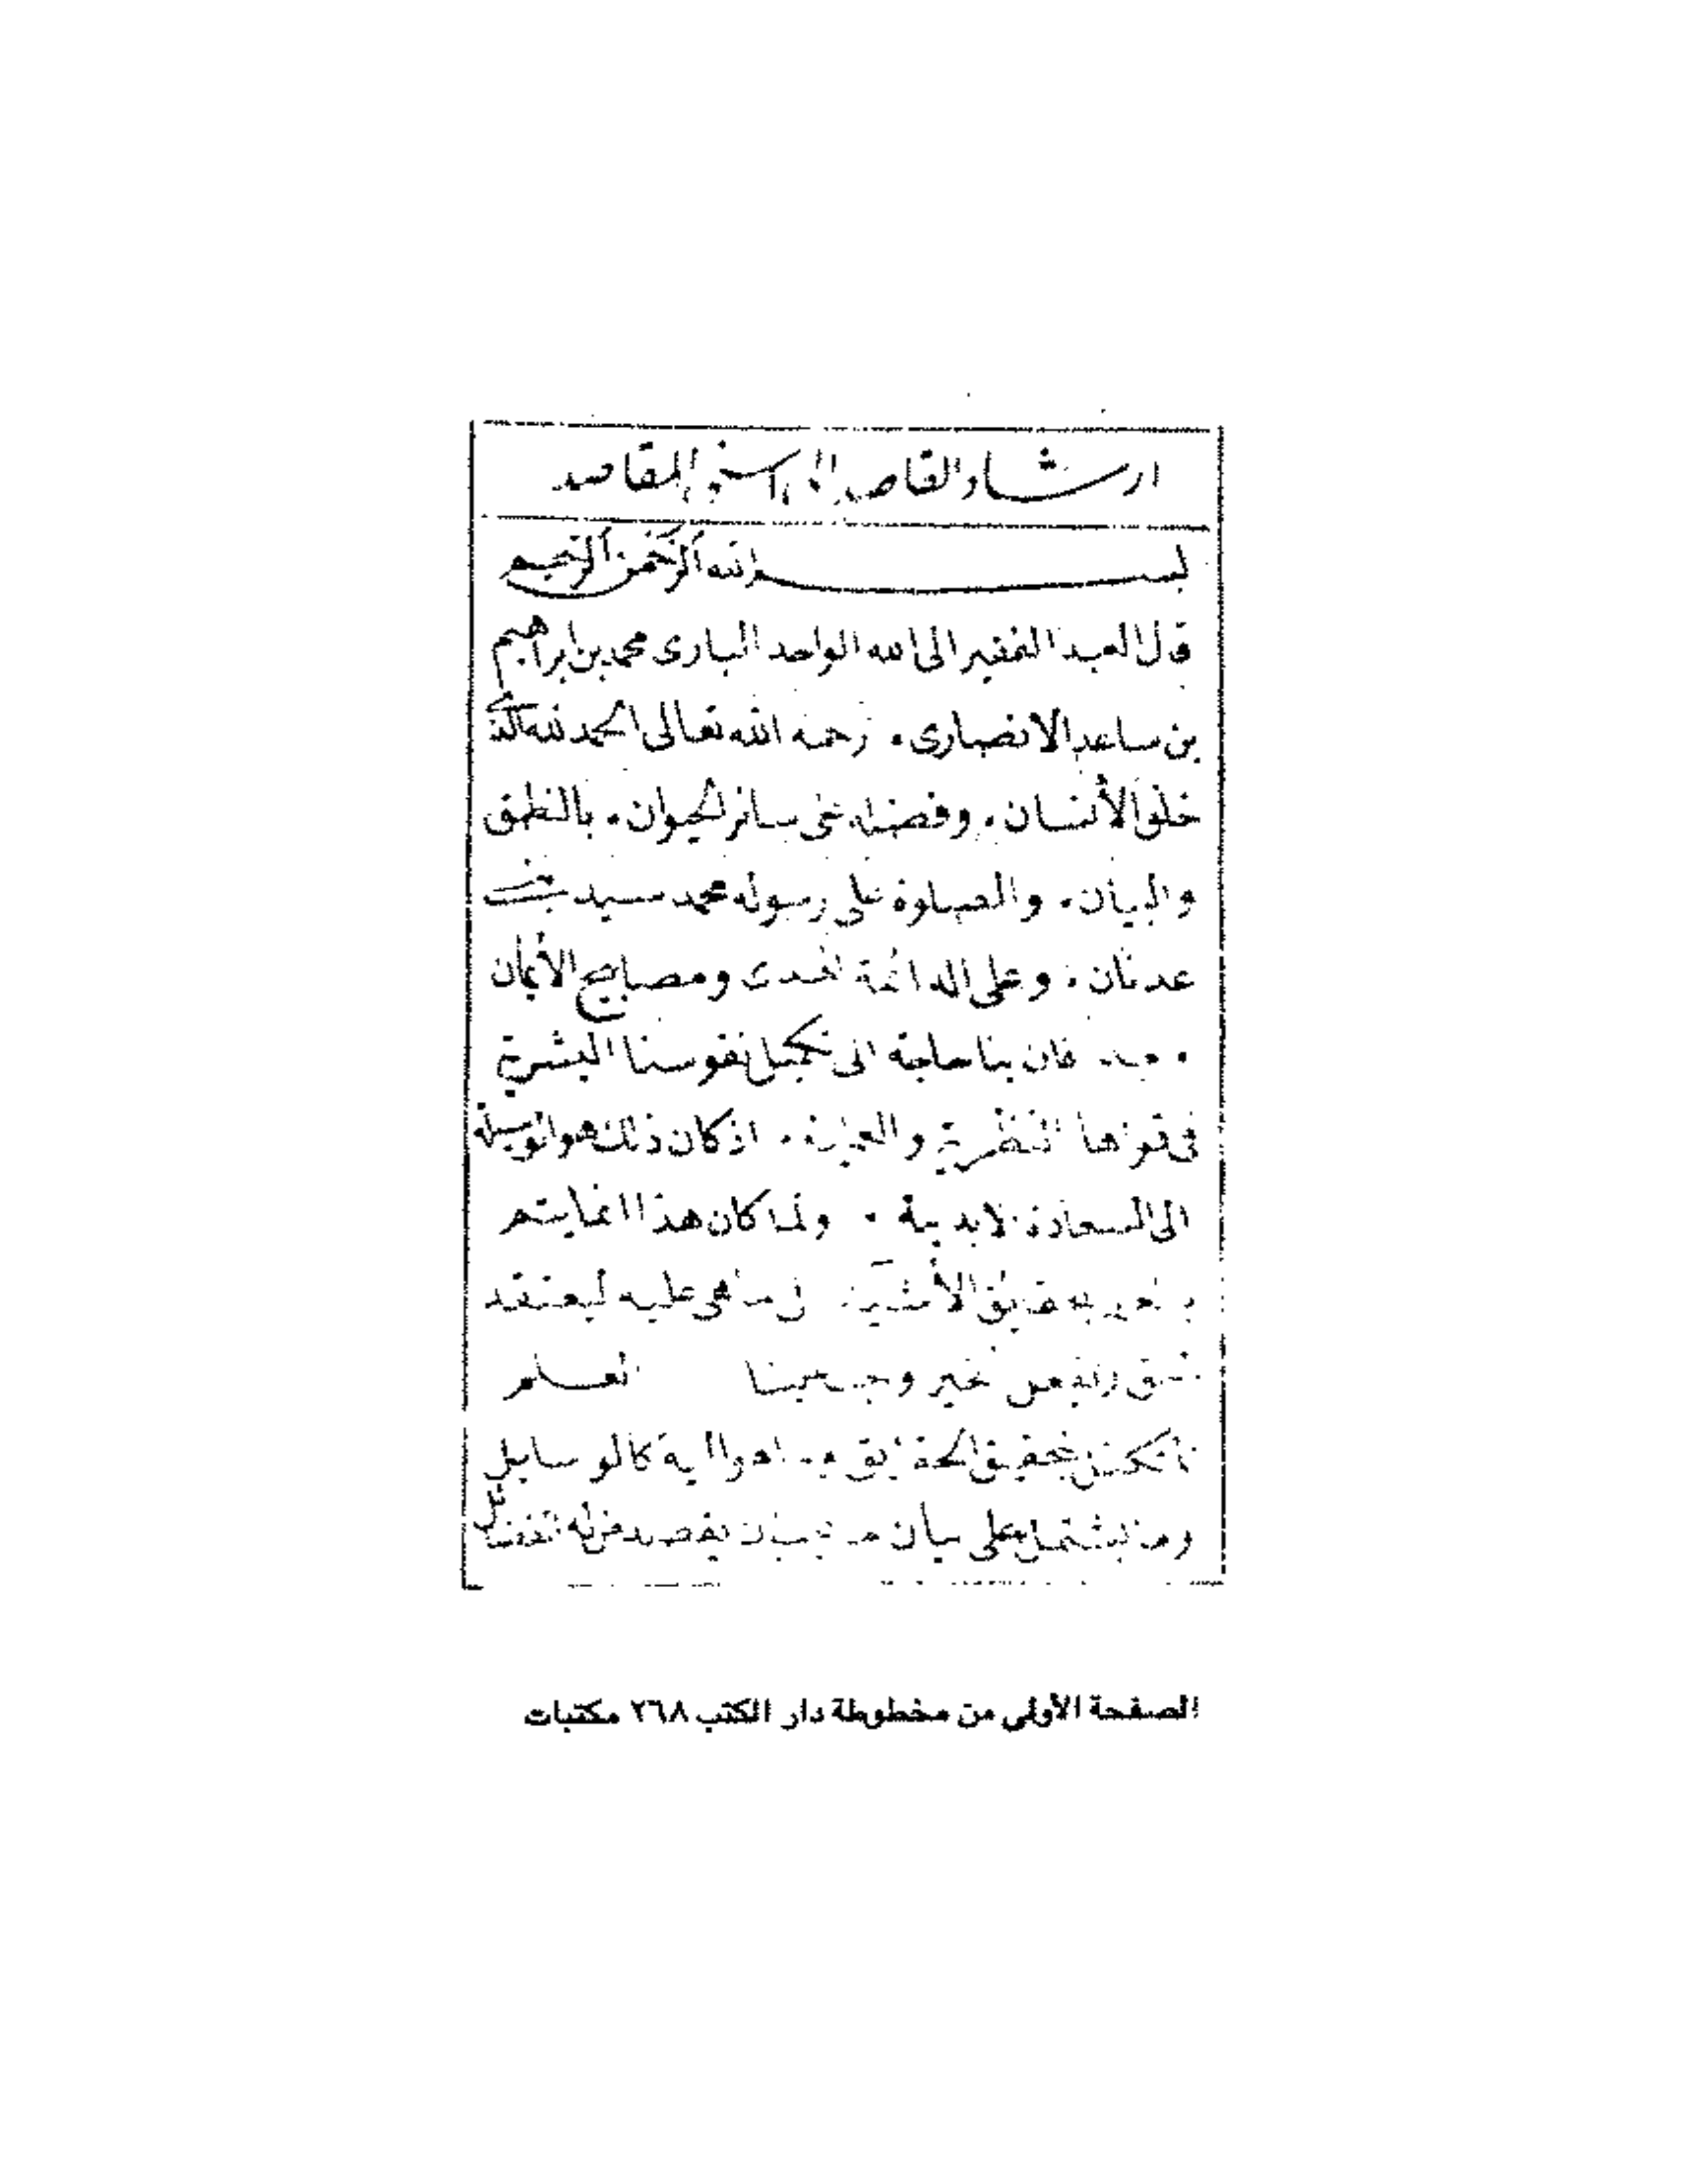 ارشاد القاصد الى اسنى المقاصد
بسم الله الرحمن الرحيم
قال العبد الفقير الى الله الواحد البارى محمد بن ابراهيم
بن ساعد الانصارى . رحمه الله تعالى الحمد لله الذى
خلق الأنسان . وفضله على سائر الحيوان . بالنطق
والبيان . والصلوة على رسوله محمد سيد
عدنان . وعلى اله ائمة الهدى ومصابيح الأيمان
وبعد فان بنا حاجة الى تكميل نفوسنا البشرية
فى قواها النظرية والعملية . اذ كان ذلك هو الوسيلة
الى السعادة الابدية . ولما كان هذا انما يتم
حقايق الأشيآء على ما هى عليه ليعتقد
الخير وجب علينا العلم
بتحقيق الحقايق وما هو اليه كالوسايل
وما يشتمل على بيان يقصد
الصفحة الأولى من مخطوطة دار الكتب ٢٦٨ مكتبات